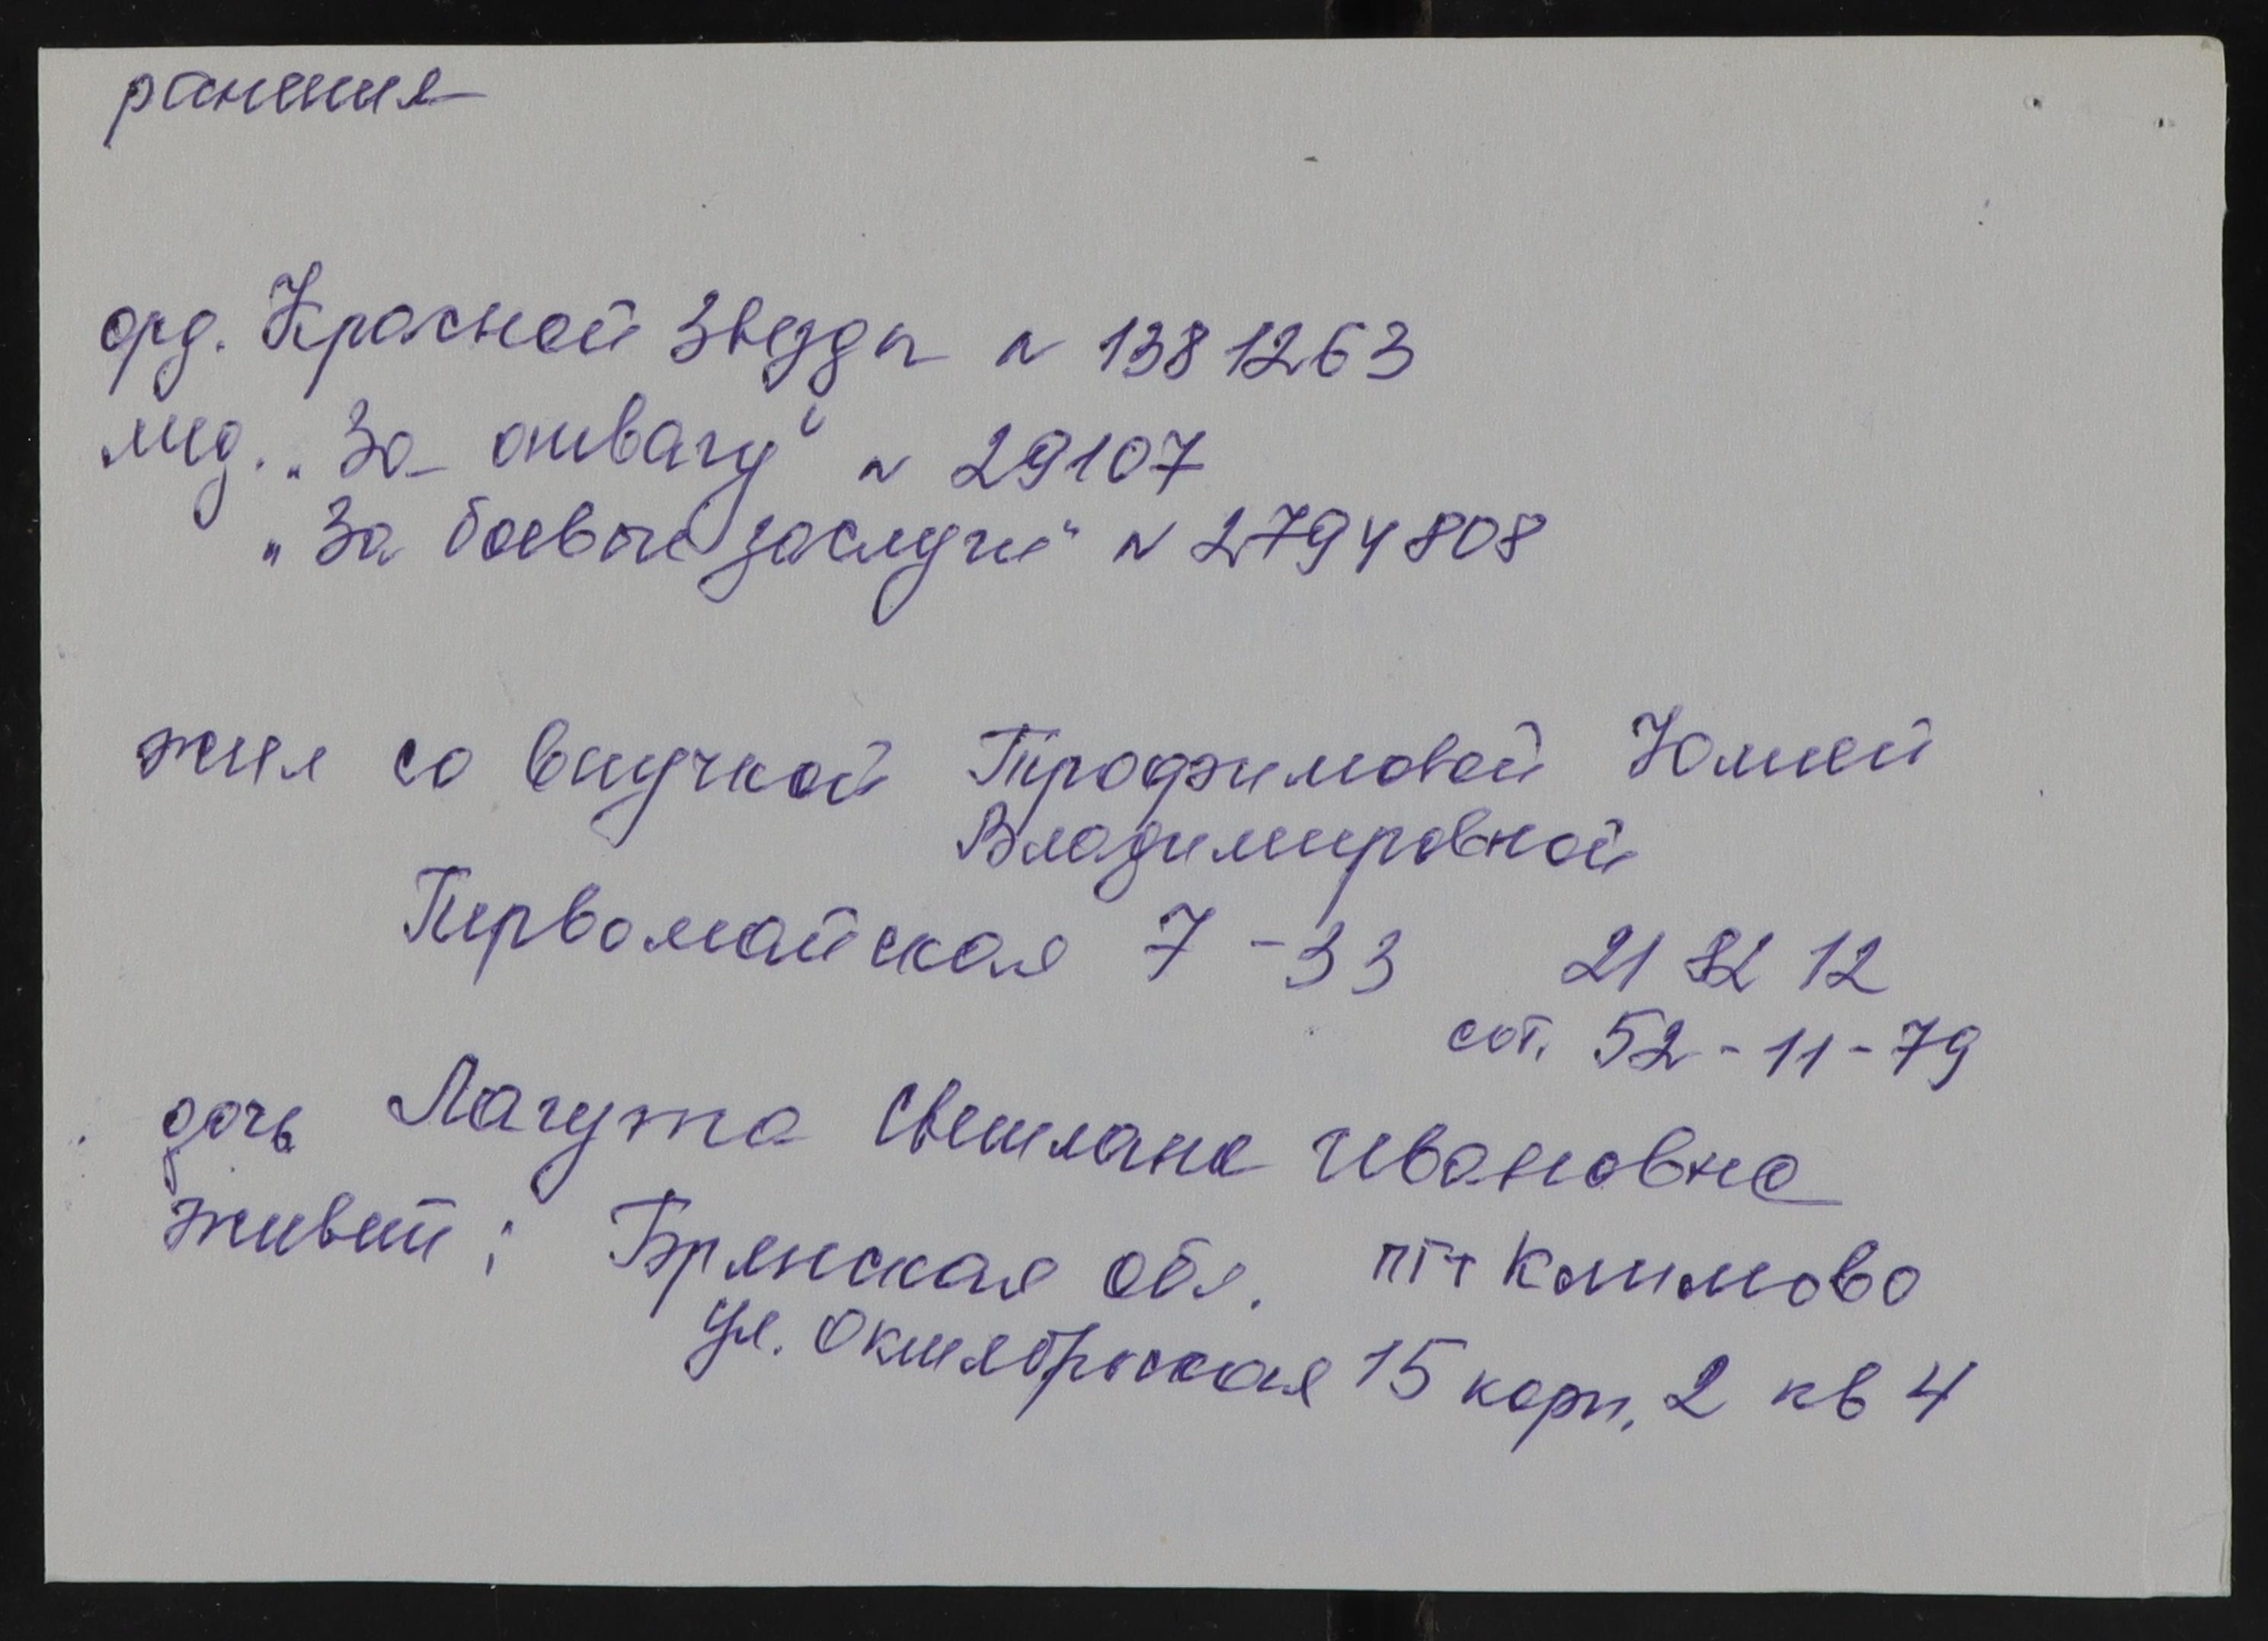 ранения
орд. Красной Звезды № 1381263
мед. „За отвагу“ № 29107
„За боевые заслуги“ № 2794808
жил со внучкой Трофимовой Юлией
Владимировной
Первомайская 7-33 21 82 12
сот. 52-11-79
дочь Лагута Светлана Ивановна
живет: Брянская обл. пгт Климово
ул. Октябрьская 15 корп. 2 кв 4